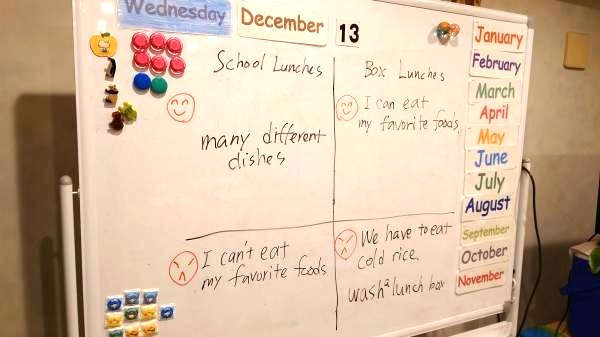 Wednesday
December
13
School Lunches
Box Lunches
many different
dishes
I can eat
my favorite foods
I can't eat
my favorite foods
We have to eat
cold rice.
wash a lunch box
January
February
March
April
May
June
July
August
September
October
November